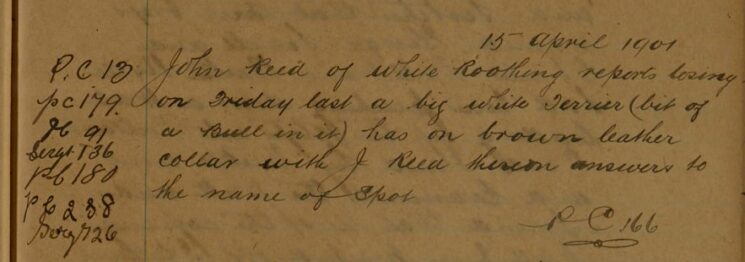 15 April 1901
P.C 13
John Reed of White Roothing reports losing
pc 179.
on Friday last a big white Terrier (bit of
91
a Bull in it) has on brown leather
Sergt 136
collar with J Reed thereon answers to
pc 180
the name of Spot
pc 238
P C 166
Sergt 26